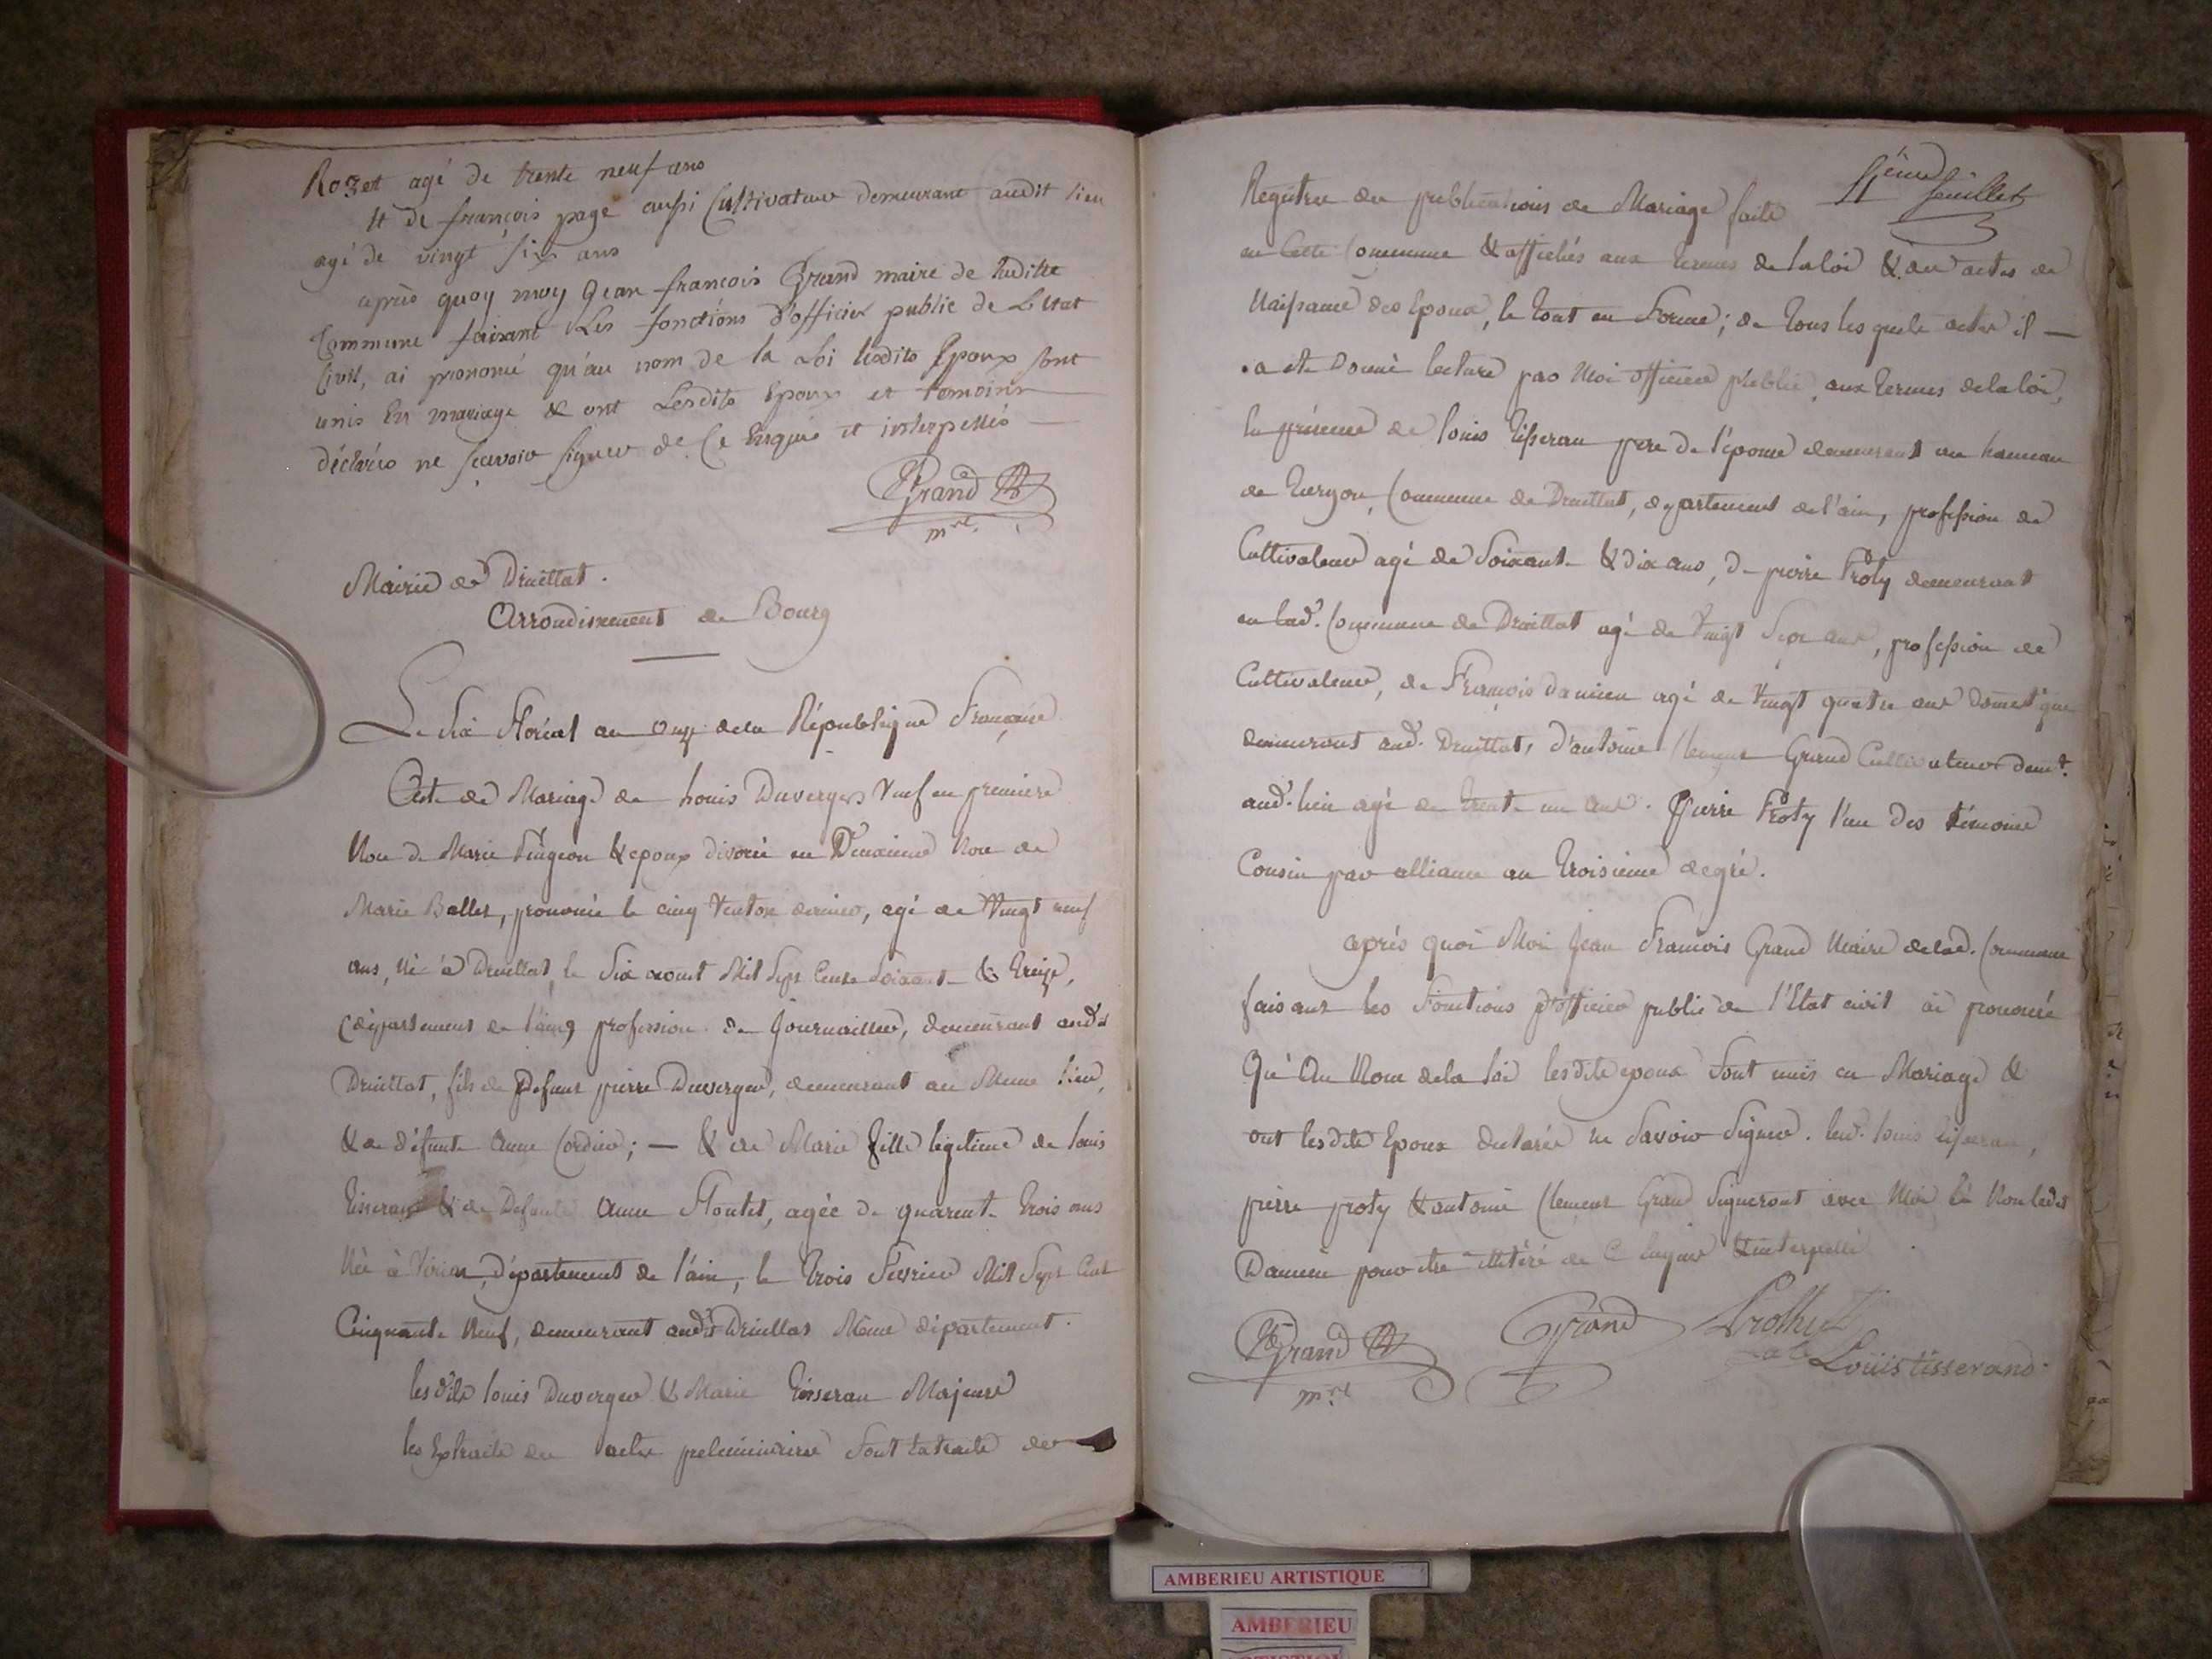 Rozet agé de trente neuf ans
et de françois page aussi Cultivateur demeurant audit lieu
agé de vingt six ans
après quoy moy Jean françois Grand maire de laditte
Commune faisant Les fonctions d'officier public de L'etat
Civil, ai prononcé qu'au nom de la Loi lesdits Epoux sont
unis En mariage & ont Lesdits Epoux et temoins
déclarés ne scavoir signer de Ce Enquis et interpellés
Grand
mre.
Mairie de Druillat.
Arrondissement de Bourg
Le Six Floréal an onze de la République Française
Acte de Mariage de Louis Duverger Veuf en premiere
Noce de Marie & epoux divorcé en Deuxieme Noce de
Marie Ballet, prononcé le cinq Ventose dernier, agé de Vingt neuf
ans, né à Druillat le Six aout Mil Sept Cents Soixante & treize,
(département de l'ain) profession de Journaillier, demeurant audit
Druillat, fils de Defunt pierre Duverger, demeurant au Meme lieu,
& de défunte Anne Cordier; — & de Marie fille legitime de louis
Tisseran & de Defunte Anne Floutet, agée de quarente trois ans
Née à département de l'ain, le trois Fevrier Mil Sept Cent
Cinquante Neuf, demeurant audit Druillat Même département.
lesdits louis Duverger & Marie Tisseran Majeurs
les Extraits des actes preliminaires sont Extraits des
Registres des publications de Mariage faite
4eme feuillet
en Cette Commune & affichés aux termes de la loi & des actes de
Naissance des Epoux, le tout en Forme; de tous les quels actes il —
a été Donné lecture par Moi officier public, aux termes de la loi,
En présence de louis Tisseran pere de l'épouse demeurant au hameau
de Turgon, Commune de Druillat, departement de l'ain, profession de
Cultivateur agé de Soixante & dix ans, De pierre Proty demeurant
en lad. Commune de Druillat agé de Vingt Sept ans, profession de
Cultivateur, de François Damien agé de Vingt quatre ans Domestique
demeurant aud. Druillat, d'antoine Clement Grand Cultivateur demt.
aud. lieu agé de trente un ans. Pierre Proty l'un des témoins
Cousin par alliance au troisieme degré.
après quoi Moi Jean François Grand Maire de lad. Commune
faisant les Fonctions d'officier public de l'Etat civil ai prononcé
Qu'Au Nom de la loi lesdits epoux sont unis en Mariage &
ont lesdits Epoux declarés ne Savoir Signer. led. louis tisseran,
pierre proty & antoine Clement Grand Signeront avec Moi & Non ledit
Damien pour être illitéré de Ce Enquis & interpellé
Grand Grand Prothy
mre
Louis tisserand
AMBERIEU ARTISTIQUE
AMBERIEU